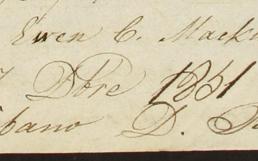 Ewen C. Mack
Dbre 1851
pano D.